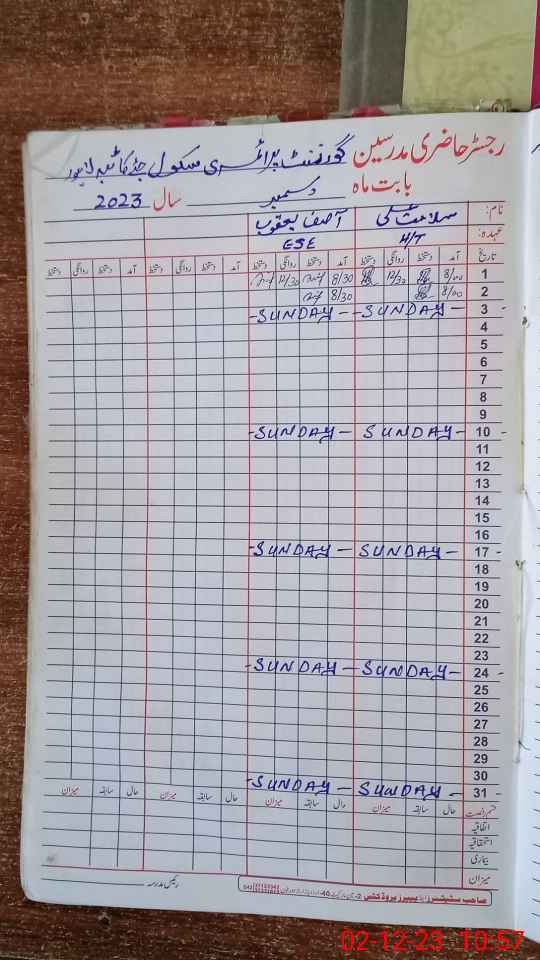 رجسٹر حاضری مدرسین گورنمنٹ پرائمری سکول
بابت ماہ دسمبر سال 2023
نام: سلامت علی آصف یعقوب
عہدہ: H/T ESE
تاریخ آمد دستخط روانگی دستخط آمد دستخط روانگی دستخط آمد دستخط روانگی دستخط آمد دستخط روانگی دستخط
1 8/00 12/30 8/30 12/30
2 8/00 8/30
3 - SUNDAY - - SUNDAY -
4
5
6
7
8
9
10 - SUNDAY - SUNDAY -
11
12
13
14
15
16
17 - SUNDAY - SUNDAY -
18
19
20
21
22
23
24 - SUNDAY - SUNDAY -
25
26
27
28
29
30
31 - SUNDAY - SUNDAY -
حال سابقہ میزان حال سابقہ میزان حال سابقہ میزان حال سابقہ میزان
اتفاقیہ
استحقاقیہ
بیماری
میزان
رئیس مدرسہ
صاحب سٹیشنرز اینڈ پیپرز پروڈکٹس
02-12-23 10:57